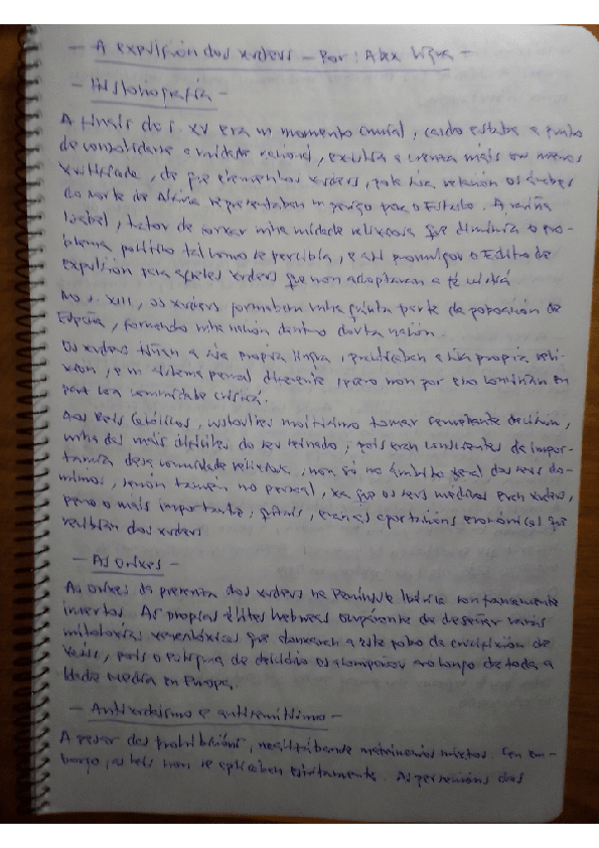 - A expulsión dos xudeus - Por: Alex
- Historiografía -
A finais do s. XV era un momento crucial, cando estaba a punto
de consolidarse a unidade nacional, existía a crenza máis ou menos
xustificada, de que elementos xudeus, pola súa relación os árabes
do norte de África representaban un perigo para o Estado. A raíña
Isabel, trator de forxar unha unidade relixiosa que diminuía o pro-
blema político tal como se percibía, e así promulgou o Edito de
Expulsión para aqueles xudeus que non adoptaran a fé cristiá
No s. XIII, os xudeus formaban unha quinta parte da poboación de
España, formando unha nación dentro doutra nación.
Os xudeus tiñan a súa propia lingua, practicaban a súa propia reli-
xión, e un sistema penal diferente, pero non por eso
coa comunidade cristiá.
Aos Reis Católicos, custoulles moitísimo tomar semellante decisión,
unha das máis difíciles do seu reinado, pois eran conscientes da impor-
tancia desa comunidade relixiosa, non só no ámbito xeral dos seus do-
minios, senón tamén no persoal, xa que os seus médicos eran xudeus,
pero o máis importante, quizais, eran as aportacións económicas que
recibían dos xudeus.
- As orixes -
As orixes da presenza dos xudeus na Península Ibérica son
incertos. As propias élites hebreas de deseñar varias
mitoloxías xenealóxicas que a este pobo da crucifixión de
Xesús, pois o estigma de deicidio os acompañou ao longo de toda a
Idade Media en Europa.
- Antixudaísmo e antisemitismo -
A pesar das prohibicións, matrimonios mixtos. Sen em-
bargo, as leis non se aplicaban estritamente. As dos